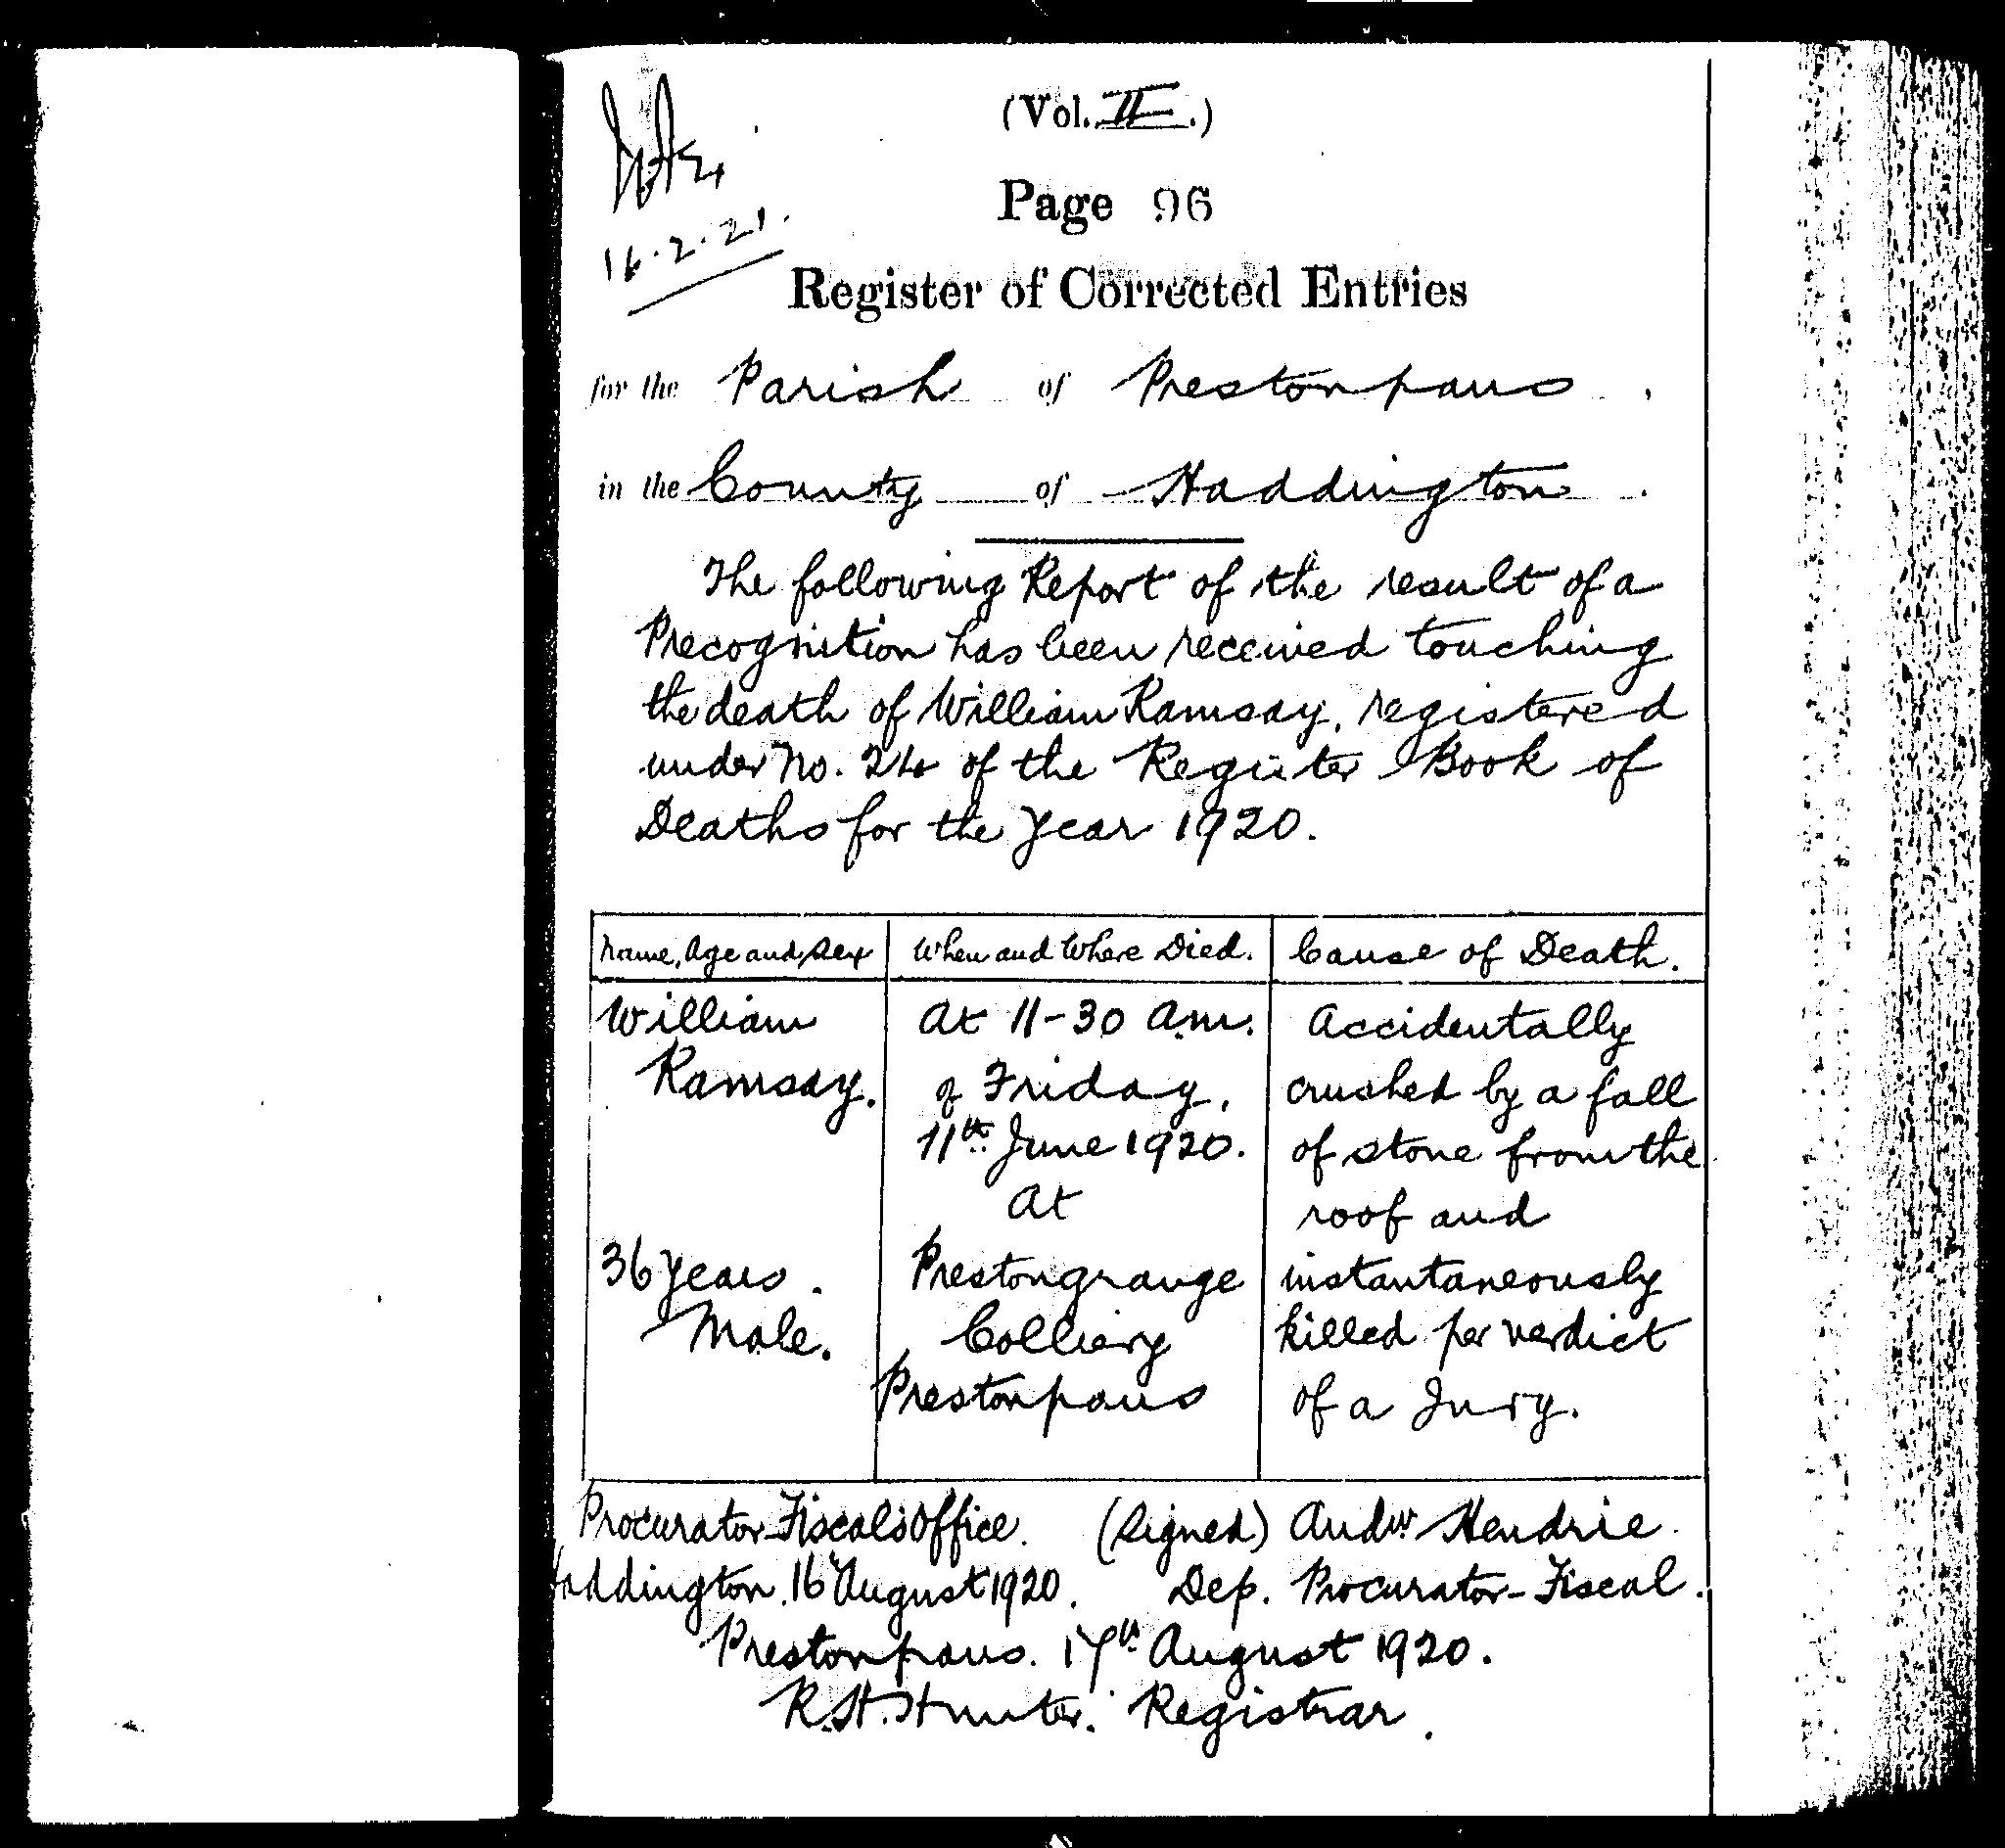 (Vol. II.)
Page 96
16.2.21.
Register of Corrected Entries
for the Parish of Prestonpans.
in the County of Haddington.
The following Report of the result of a
Precognition has been received touching
the death of William Ramsay, registered
under No. 24 of the Register Book of
Deaths for the year 1920.
Name, Age and Sex | When and Where Died. | Cause of Death.
William | At 11-30 a.m. | Accidentally
Ramsay. | of Friday, | crushed by a fall
11th June 1920. | of stone from the
At | roof and
36 years. | Prestongrange | instantaneously
Male. | Colliery | killed per verdict
Prestonpans | of a Jury.
Procurator-Fiscal's Office. (Signed) Andw Hendrie.
Haddington. 16 August 1920. Dep. Procurator-Fiscal.
Prestonpans. 17th August 1920.
R. H. Hunter. Registrar.